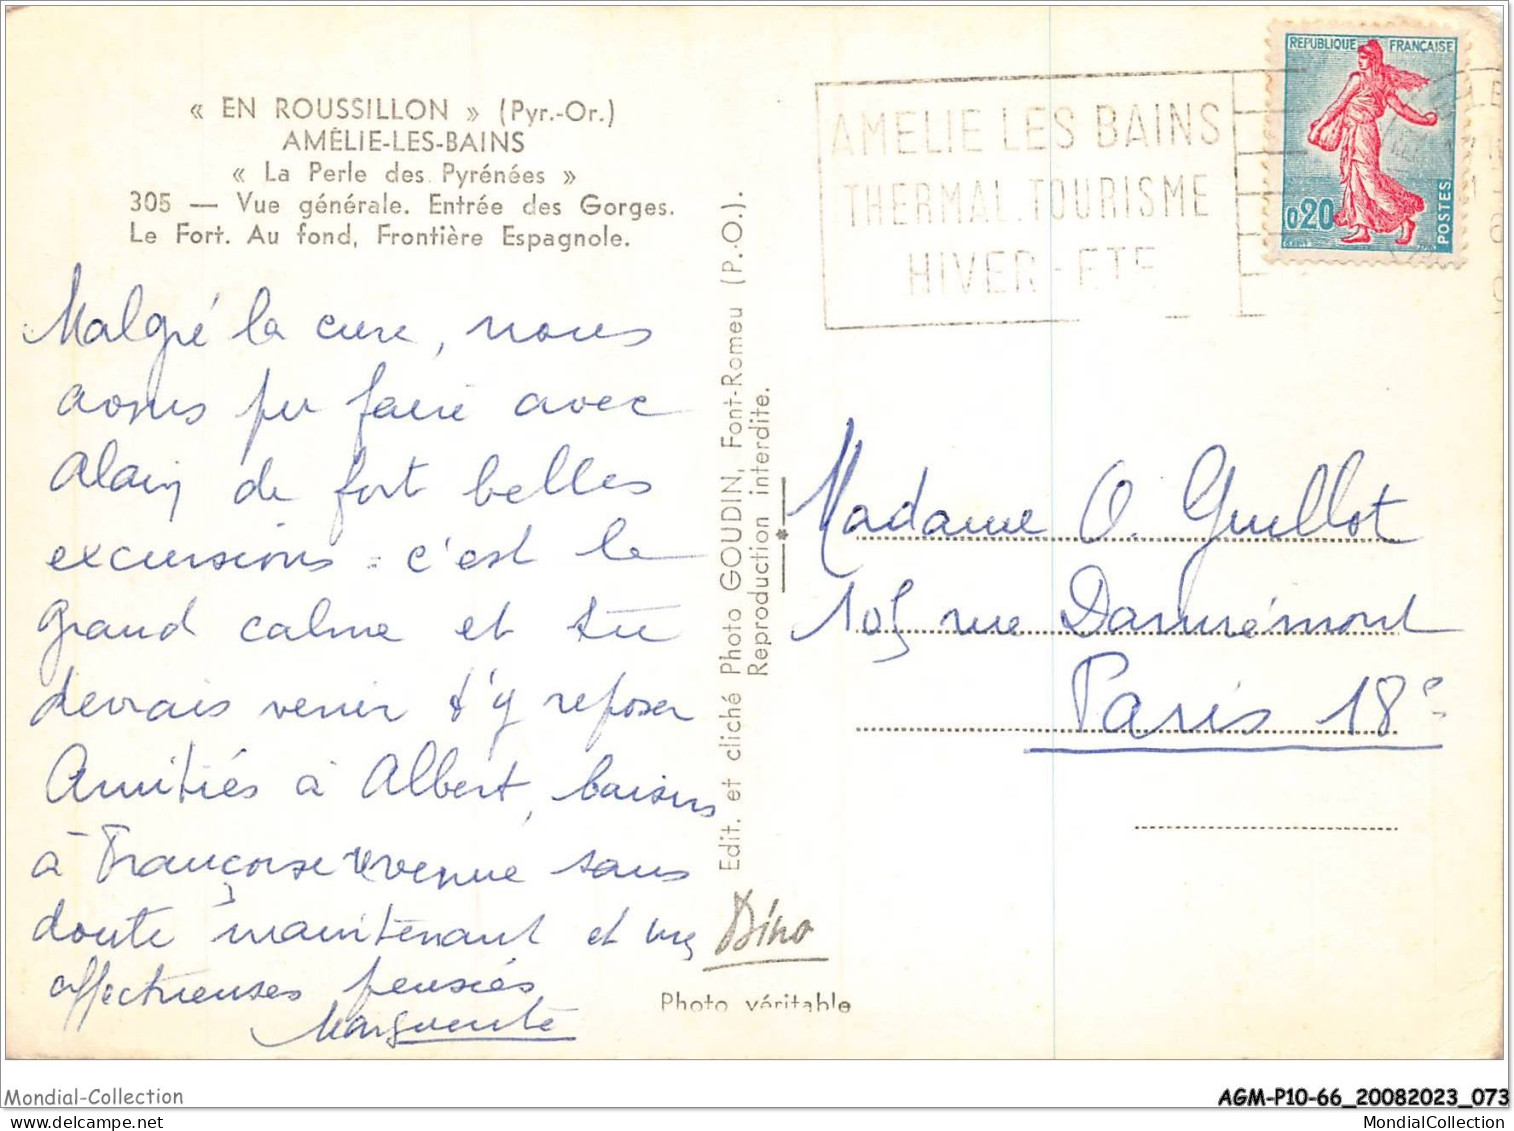 « EN ROUSSILLON » (Pyr.-Or.)
AMÉLIE-LES-BAINS
« La Perle des Pyrénées »
305 — Vue générale. Entrée des Gorges.
Le Fort. Au fond, Frontière Espagnole.
Malgré la cure, nous
avons pu faire avec
Alain de fort belles
excursions = c'est le
grand calme et tu
devrais venir t'y reposer
Amitiés à Albert, baisers
à Françoise revenue sans
doute maintenant et mes
affectueuses pensées
Marguerite
Edit. et cliché Photo GOUDIN, Font-Romeu (P.-O.).
Reproduction interdite.
Dino
Photo véritable
AMELIE LES BAINS
THERMAL.TOURISME
HIVER-ETE
REPUBLIQUE FRANÇAISE
0,20
POSTES
Madame O. Guillot
105 rue Damrémont
Paris 18e
Mondial-Collection
AGM-P10-66_20082023_073
MondialCollection